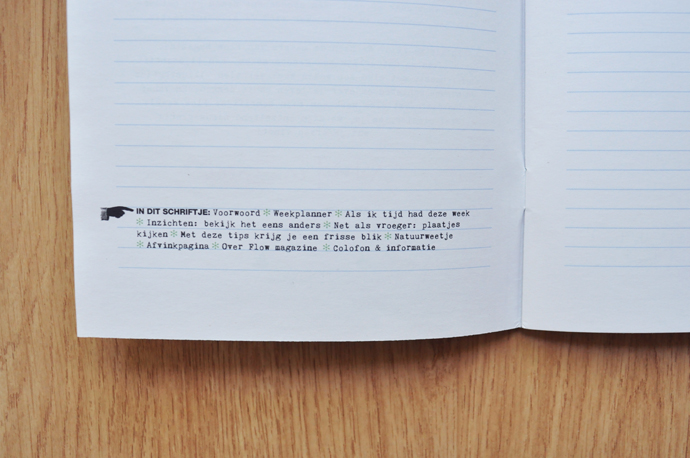 IN DIT SCHRIFTJE: Voorwoord ✻ Weekplanner ✻ Als ik tijd had deze week
✻ Inzichten: bekijk het eens anders ✻ Net als vroeger: plaatjes
kijken ✻ Met deze tips krijg je een frisse blik ✻ Natuurweetje
✻ Afvinkpagina ✻ Over Flow magazine ✻ Colofon & informatie